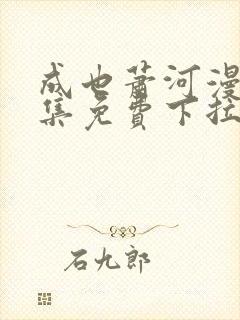 成也萧河漫
集免费下拉
石九郎